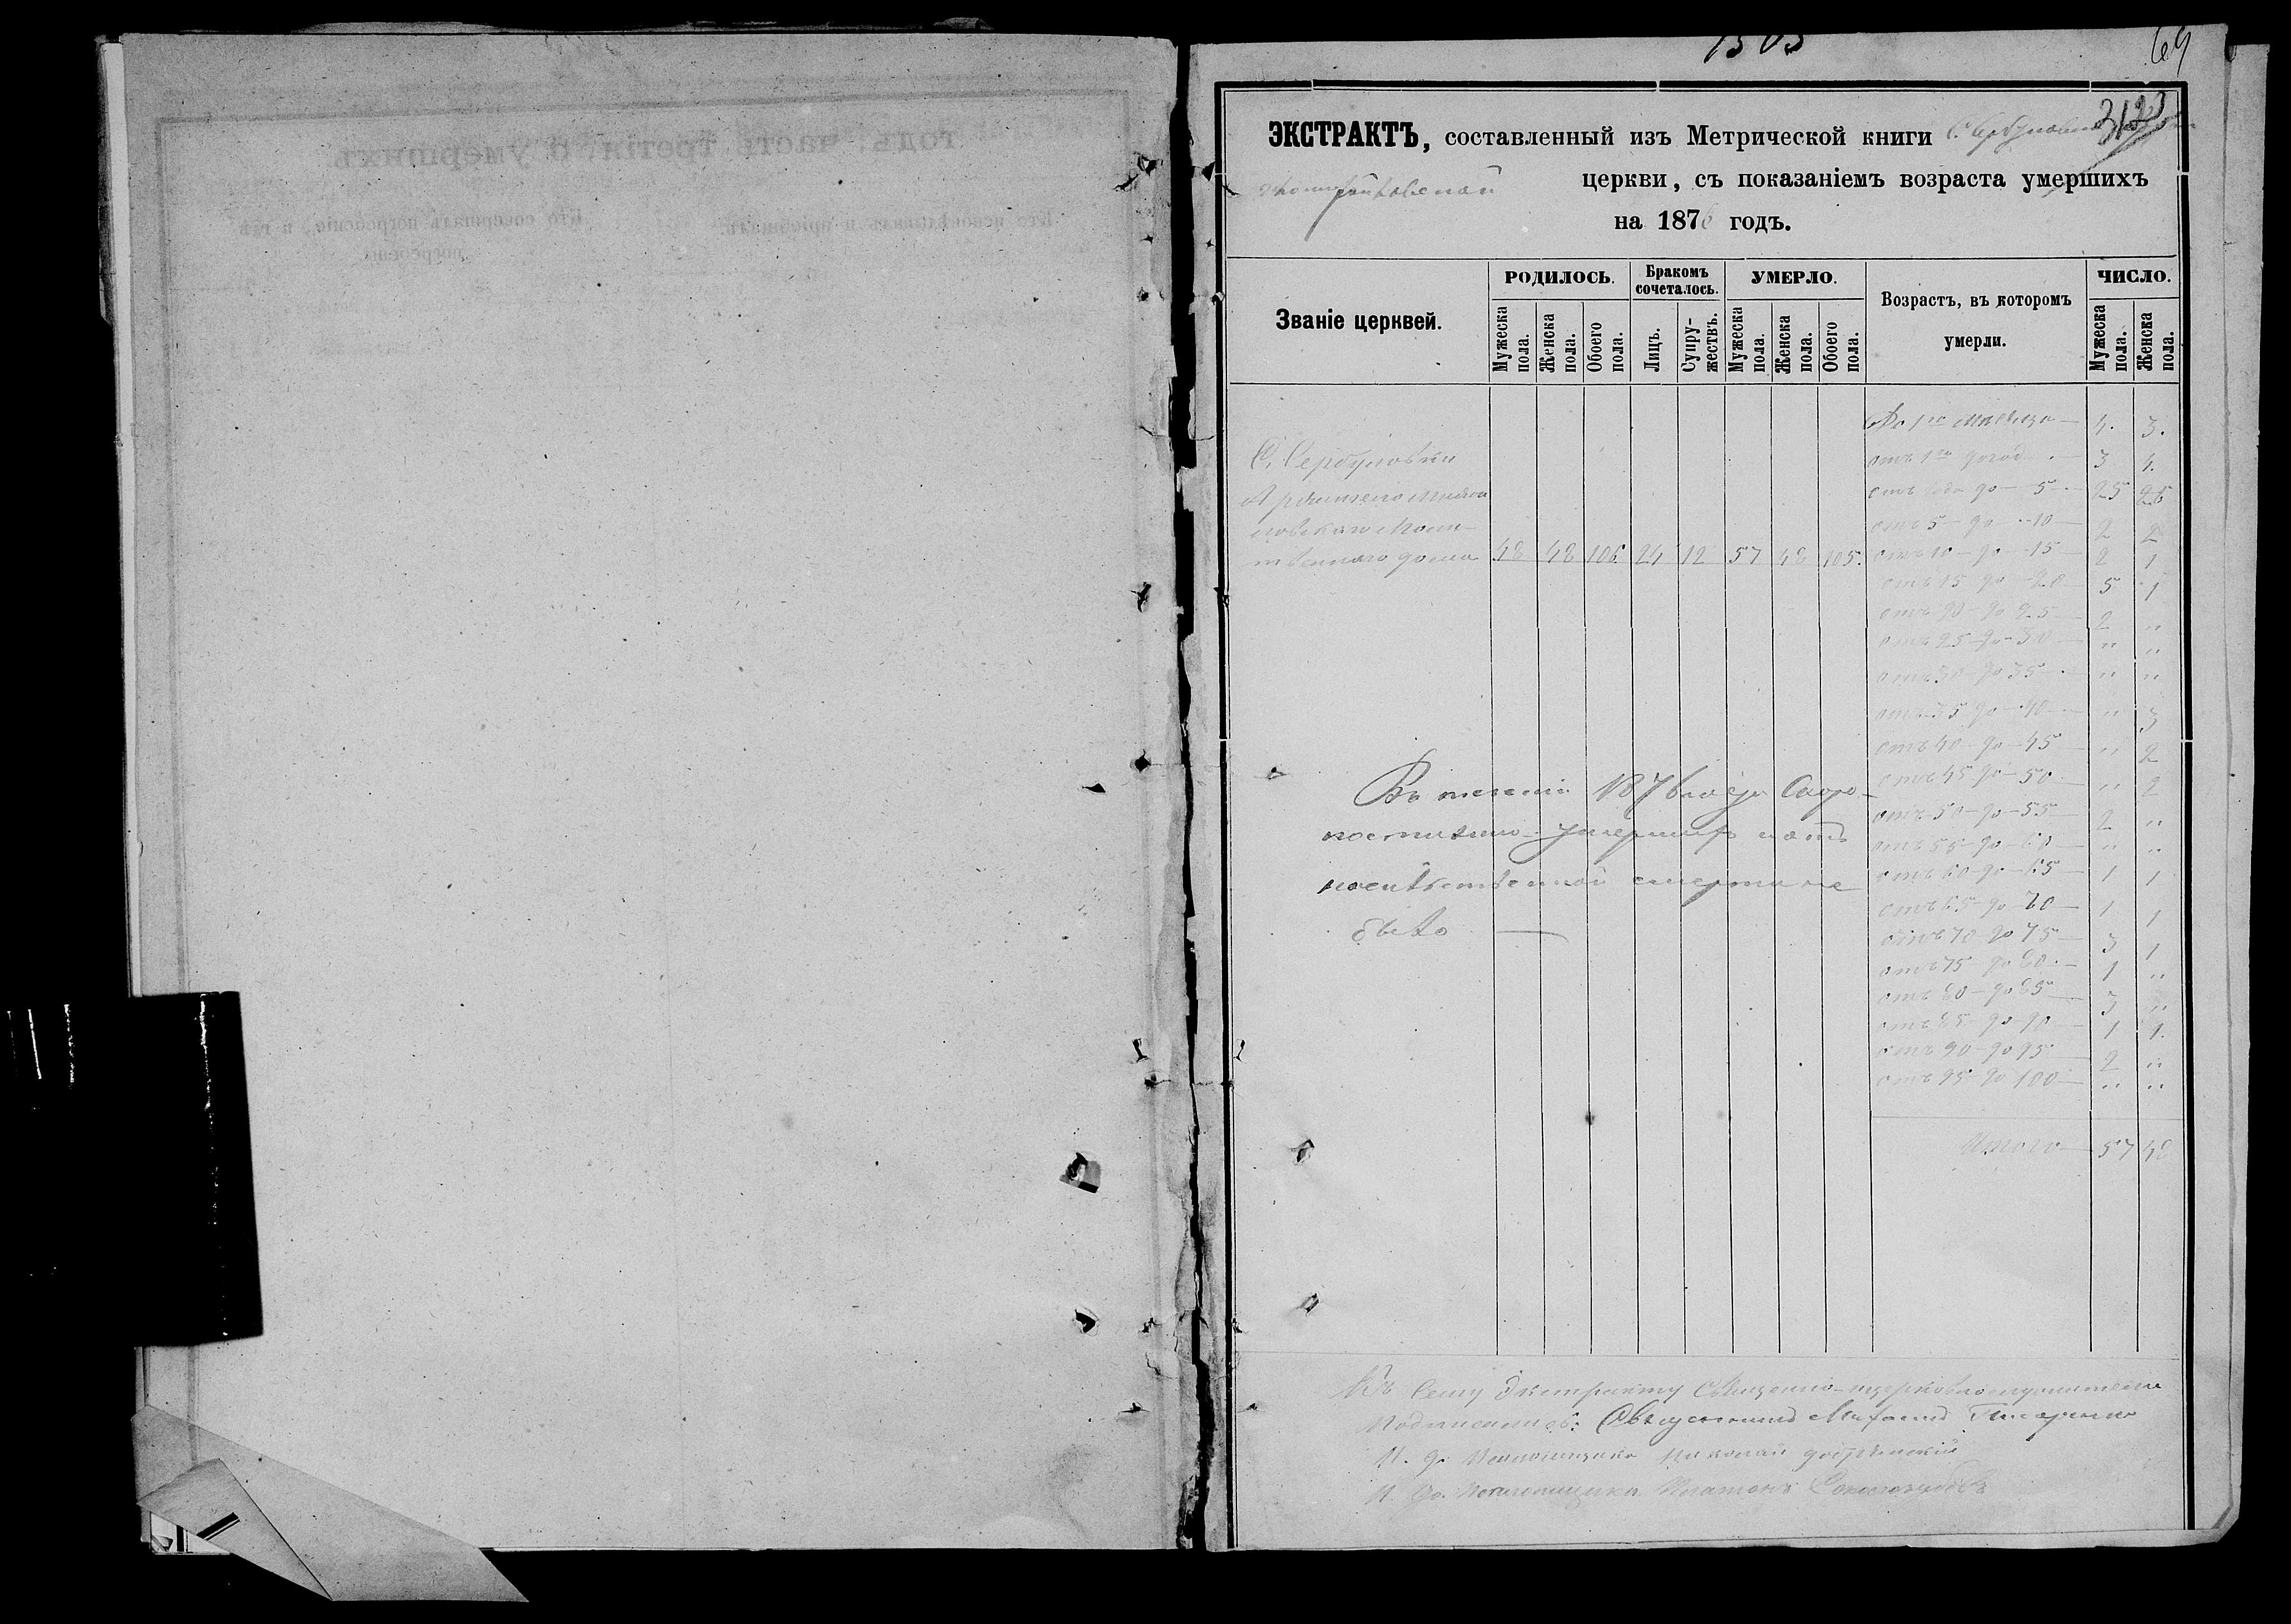 годъ, часть третія, о умершихъ
Кто исповѣдывалъ и пріобщалъ.
Кто совершалъ погребеніе, и гдѣ
погребены.
1303
69
3123
ЭКСТРАКТЪ, составленный изъ Метрической книги С. Сербуловки
церкви, съ показаніемъ возраста умершихъ
на 1876 годъ.
Званіе церквей.
РОДИЛОСЬ.
Мужеска пола.
Женска пола.
Обоего пола.
Бракомъ сочеталось.
Лицъ.
Супружествъ.
УМЕРЛО.
Мужеска пола.
Женска пола.
Обоего пола.
Возрастъ, въ которомъ умерли.
ЧИСЛО.
Мужеска пола.
Женска пола.
С. Сербуловки
твеннаго дома 48 106 24 12 57 48 105.
До 1го мѣсяца 4. 3.
отъ 1го до год 3 4.
отъ года до 5 25 26
отъ 5 до 10 2 2
отъ 10 до 15 2 1
отъ 15 до 20 5 1
отъ 20 до 25 2 „
отъ 25 до 30 „ „
отъ 30 до 35 „ „
отъ 35 до 40 „ 3
отъ 40 до 45 „ 2
отъ 45 до 50 „ 2
отъ 50 до 55 2 „
отъ 55 до 60 „ „
отъ 60 до 65 1 1
отъ 65 до 70 1 1
отъ 70 до 75 3 1
отъ 75 до 80 1 „
отъ 80 до 85 3 „
отъ 85 до 90 1 1.
отъ 90 до 95 2 „
отъ 95 до 100 „ „
Итого 57 48
Въ теченіи 1876 года Скоро-
постижно умершихъ
насильственной смертію не
было
Къ сему Экстракту Священно-церковнослужители
Подписались: Священникъ Михаилъ
И. д. Псаломщика Николай
И. до. Псаломщика Платонъ